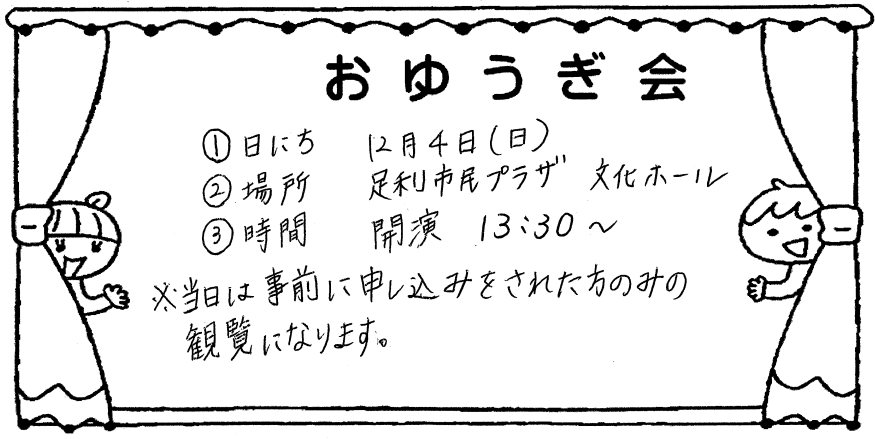 おゆうぎ会
①日にち 12月4日(日)
②場所 足利市民プラザ 文化ホール
③時間 開演 13:30~
※当日は事前に申し込みをされた方のみの
観覧になります。